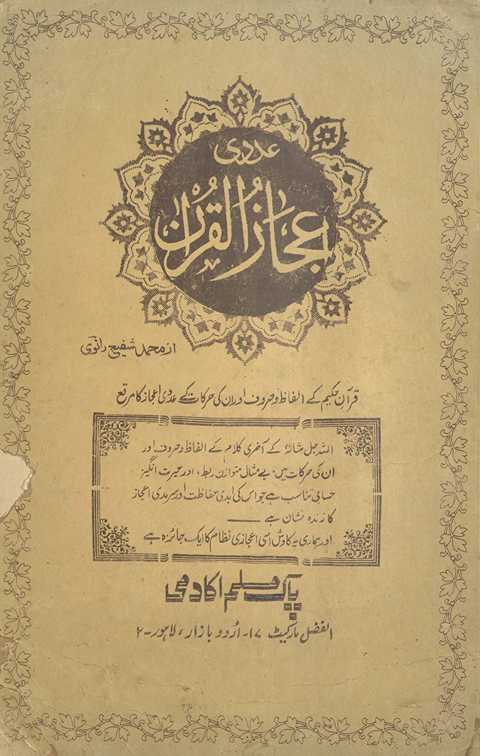 عددی
اعجاز القرآن
از محمد شفیع رانوی
قرآن حکیم کے الفاظ و حروف اور ان کی حرکات کے عددی اعجاز کا مرقع
اللہ جل شانہٗ کے آخری کلام کے الفاظ و حروف اور
ان کی حرکات میں بے مثال متوازن ربط، اور حیرت انگیز
حسابی تناسب ہے جو اس کی ابدی حفاظت اور سرمدی اعجاز
کا زندہ نشان ہے ——
اور ہماری یہ کاوش اسی اعجازی نظام کا ایک جائزہ ہے
پاک مسلم اکادمی
الفضل مارکیٹ ۱۷- اُردو بازار، لاہور-۲